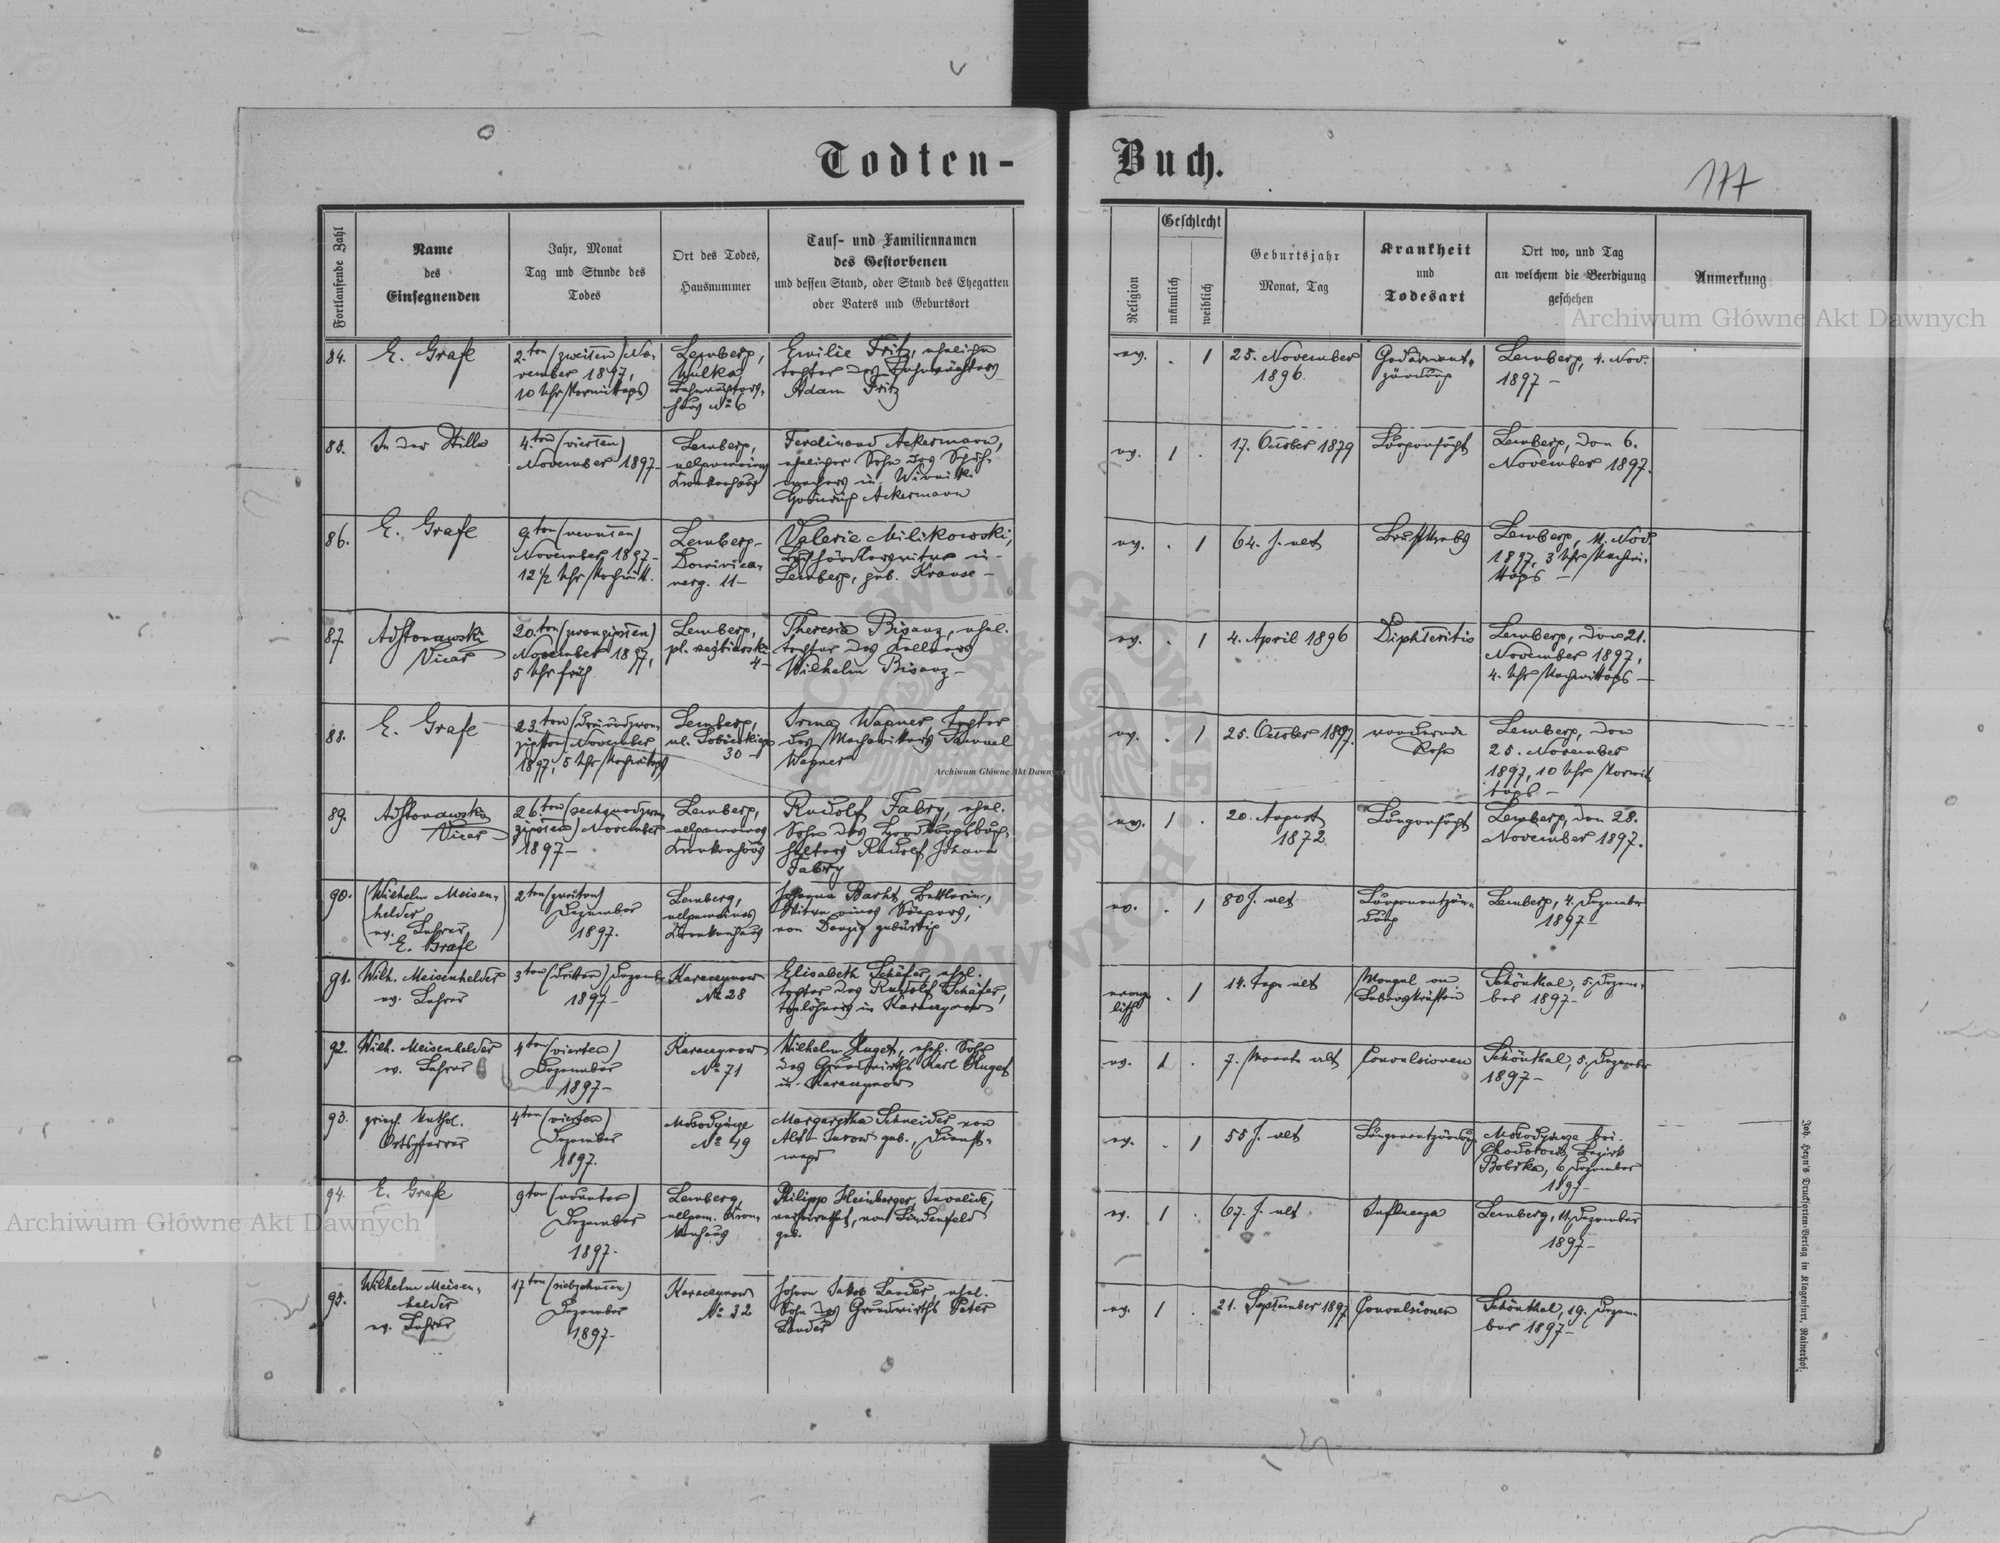 Todten-Buch.
177
Fortlaufende Zahl
Name
des
Einsegnenden
Jahr, Monat
Tag und Stunde des
Todes
Ort des Todes,
Hausnummer
Tauf- und Familiennamen
des Gestorbenen
und dessen Stand, oder Stand des Ehegatten
oder Vaters und Geburtsort
Religion
Geschlecht
männlich
weiblich
Geburtsjahr
Monat, Tag
Krankheit
und
Todesart
Ort wo, und Tag
an welchem die Beerdigung
geschehen
Anmerkung
84.
E. Grafe
2.ten (zweiten) No-
vember 1897,
10 Uhr Vormittags
Lemberg,
Wulka
haus No 6
Emilie Fritz, eheliche
Tochter des Bahnwächters
Adam Fritz
ev. . 1
25. November
1896.
Gedärment-
zündung
Lemberg, 4. Nov.
1897 –
85.
In der Stille
4.ten (vierten)
November 1897 –
Lemberg,
allgemeines
Krankenhaus
Ferdinand Ackermann,
ehelicher Sohn des Schuh-
machers in Winniki
Ackermann
ev. 1 .
17. October 1879
Lungensucht
Lemberg, den 6.
November 1897.
86.
E. Grafe
9.ten (neunten)
November 1897 –
12 1/2 Uhr Nachmitt.
Lemberg –
Dominica-
nerg. 11 –
Valerie Milikowski,
Buchhändlerswitwe in
Lemberg, geb. Krause –
ev. . 1
64. J. alt
Brustkrebs
Lemberg, 11. Nov.
1897, 3 Uhr Nachmi-
ttags –
87.
Vicar
20.ten (zwanzigsten)
November 1897,
5 Uhr früh
Lemberg,
4 –
Theresia Bisanz, ehel.
Tochter des Kellners
Wilhelm Bisanz –
ev. . 1
4. April 1896
Diphteritis
Lemberg, den 21.
November 1897,
4. Uhr Nachmittags –
88.
E. Grafe
23.ten (dreiundzwan-
zigsten) November
1897, 5 Uhr Nachmittags
Lemberg,
ul. Sobieskiego
30 –
Irma Wagner, Tochter
des Mechanikers Samuel
Wagner
ev. . 1
25. October 1897.
wandernde
Rose
Lemberg, den
25. November
1897, 10 Uhr Vormit-
tags –
89.
Vicar
26.ten (sechsundzwan-
zigsten) November
1897 –
Lemberg,
allgemeines
Krankenhaus
Rudolf Fabry, ehel.
Sohn des Handlungsbuch-
halters Rudolf Johann
Fabry
ev. 1 .
20. August
1872
Lungensucht
Lemberg, den 28.
November 1897.
90.
(Wilhelm Meisen-
helder
ev. Lehrer)
E. Grafe
2ten (zweiten)
Dezember
1897.
Lemberg,
allgemeines
Krankenhaus
Johanna Barht, Bettlerin,
Witwe eines Sängers,
von Danzig gebürtig
ev. . 1
80 J. alt
Lungenentzün-
dung
Lemberg, 4. Dezember
1897 –
91.
Wilh. Meisenhelder
ev. Lehrer
3ten (dritten) Dezemb.
1897 –
Karaczynow
No 28
Elisabeth Schäfer, ehel.
Tochter des Rudolf Schäfer,
Taglöhners in Karaczynow
evange-
lisch . 1
14. Tage alt
Mangel an
Lebenskräften
Schönthal, 5. Dezem-
ber 1897 –
92.
Wilh. Meisenhelder
ev. Lehrer
4ten (vierten)
Dezember
1897 –
Karaczynow
No 71
Wilhelm Huget, ehel. Sohn
des Grundwirths Karl Huget
in Karaczynow
ev. 1 .
7. Monate alt
Convulsionen
Schönthal, 5. Dezember
1897 –
93.
griech. kathol.
Ortspfarrer
4ten (vierten)
Dezember
1897.
Mołodyńce
No 49
Margaretha Schneider von
Alt-Jarow geb., Dienst-
magd
ev. . 1
55 J. alt
Lungenentzündung
Mołodyńce bei
Chodorow, Bezirk
Bobrka, 6. Dezember
1897 –
94.
E. Grafe
9ten (neunten)
Dezember
1897.
Lemberg,
allgem. Kran-
kenhaus
Philipp Heinberger, Invalide,
verheirathet, von Lindenfeld
geb.
ev. 1 .
67. J. alt
Influenza
Lemberg, 11. Dezember
1897 –
95.
Wilhelm Meisen-
helder
ev. Lehrer
17ten (siebzehnten)
Dezember
1897 –
Karaczynow
No 32
Johann Jakob Lander, ehel.
Sohn des Grundwirths Peter
Lander
ev. 1 .
21. September 1897
Convulsionen
Schönthal, 19. Dezem-
ber 1897 –
Joh. Heyn's Drucksorten-Verlag in Klagenfurt, Rainerhof.
Archiwum Główne Akt Dawnych
Archiwum Główne Akt Dawnych
Archiwum Główne Akt Dawnych